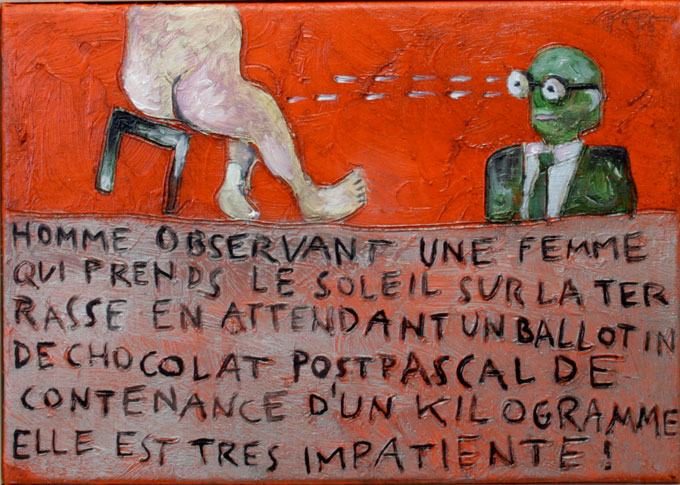 HOMME OBSERVANT UNE FEMME
QUI PRENDS LE SOLEIL SUR LA TER
RASSE EN ATTENDANT UN BALLOTIN
DE CHOCOLAT POSTPASCAL DE
CONTENANCE D'UN KILOGRAMME
ELLE EST TRES IMPATIENTE !